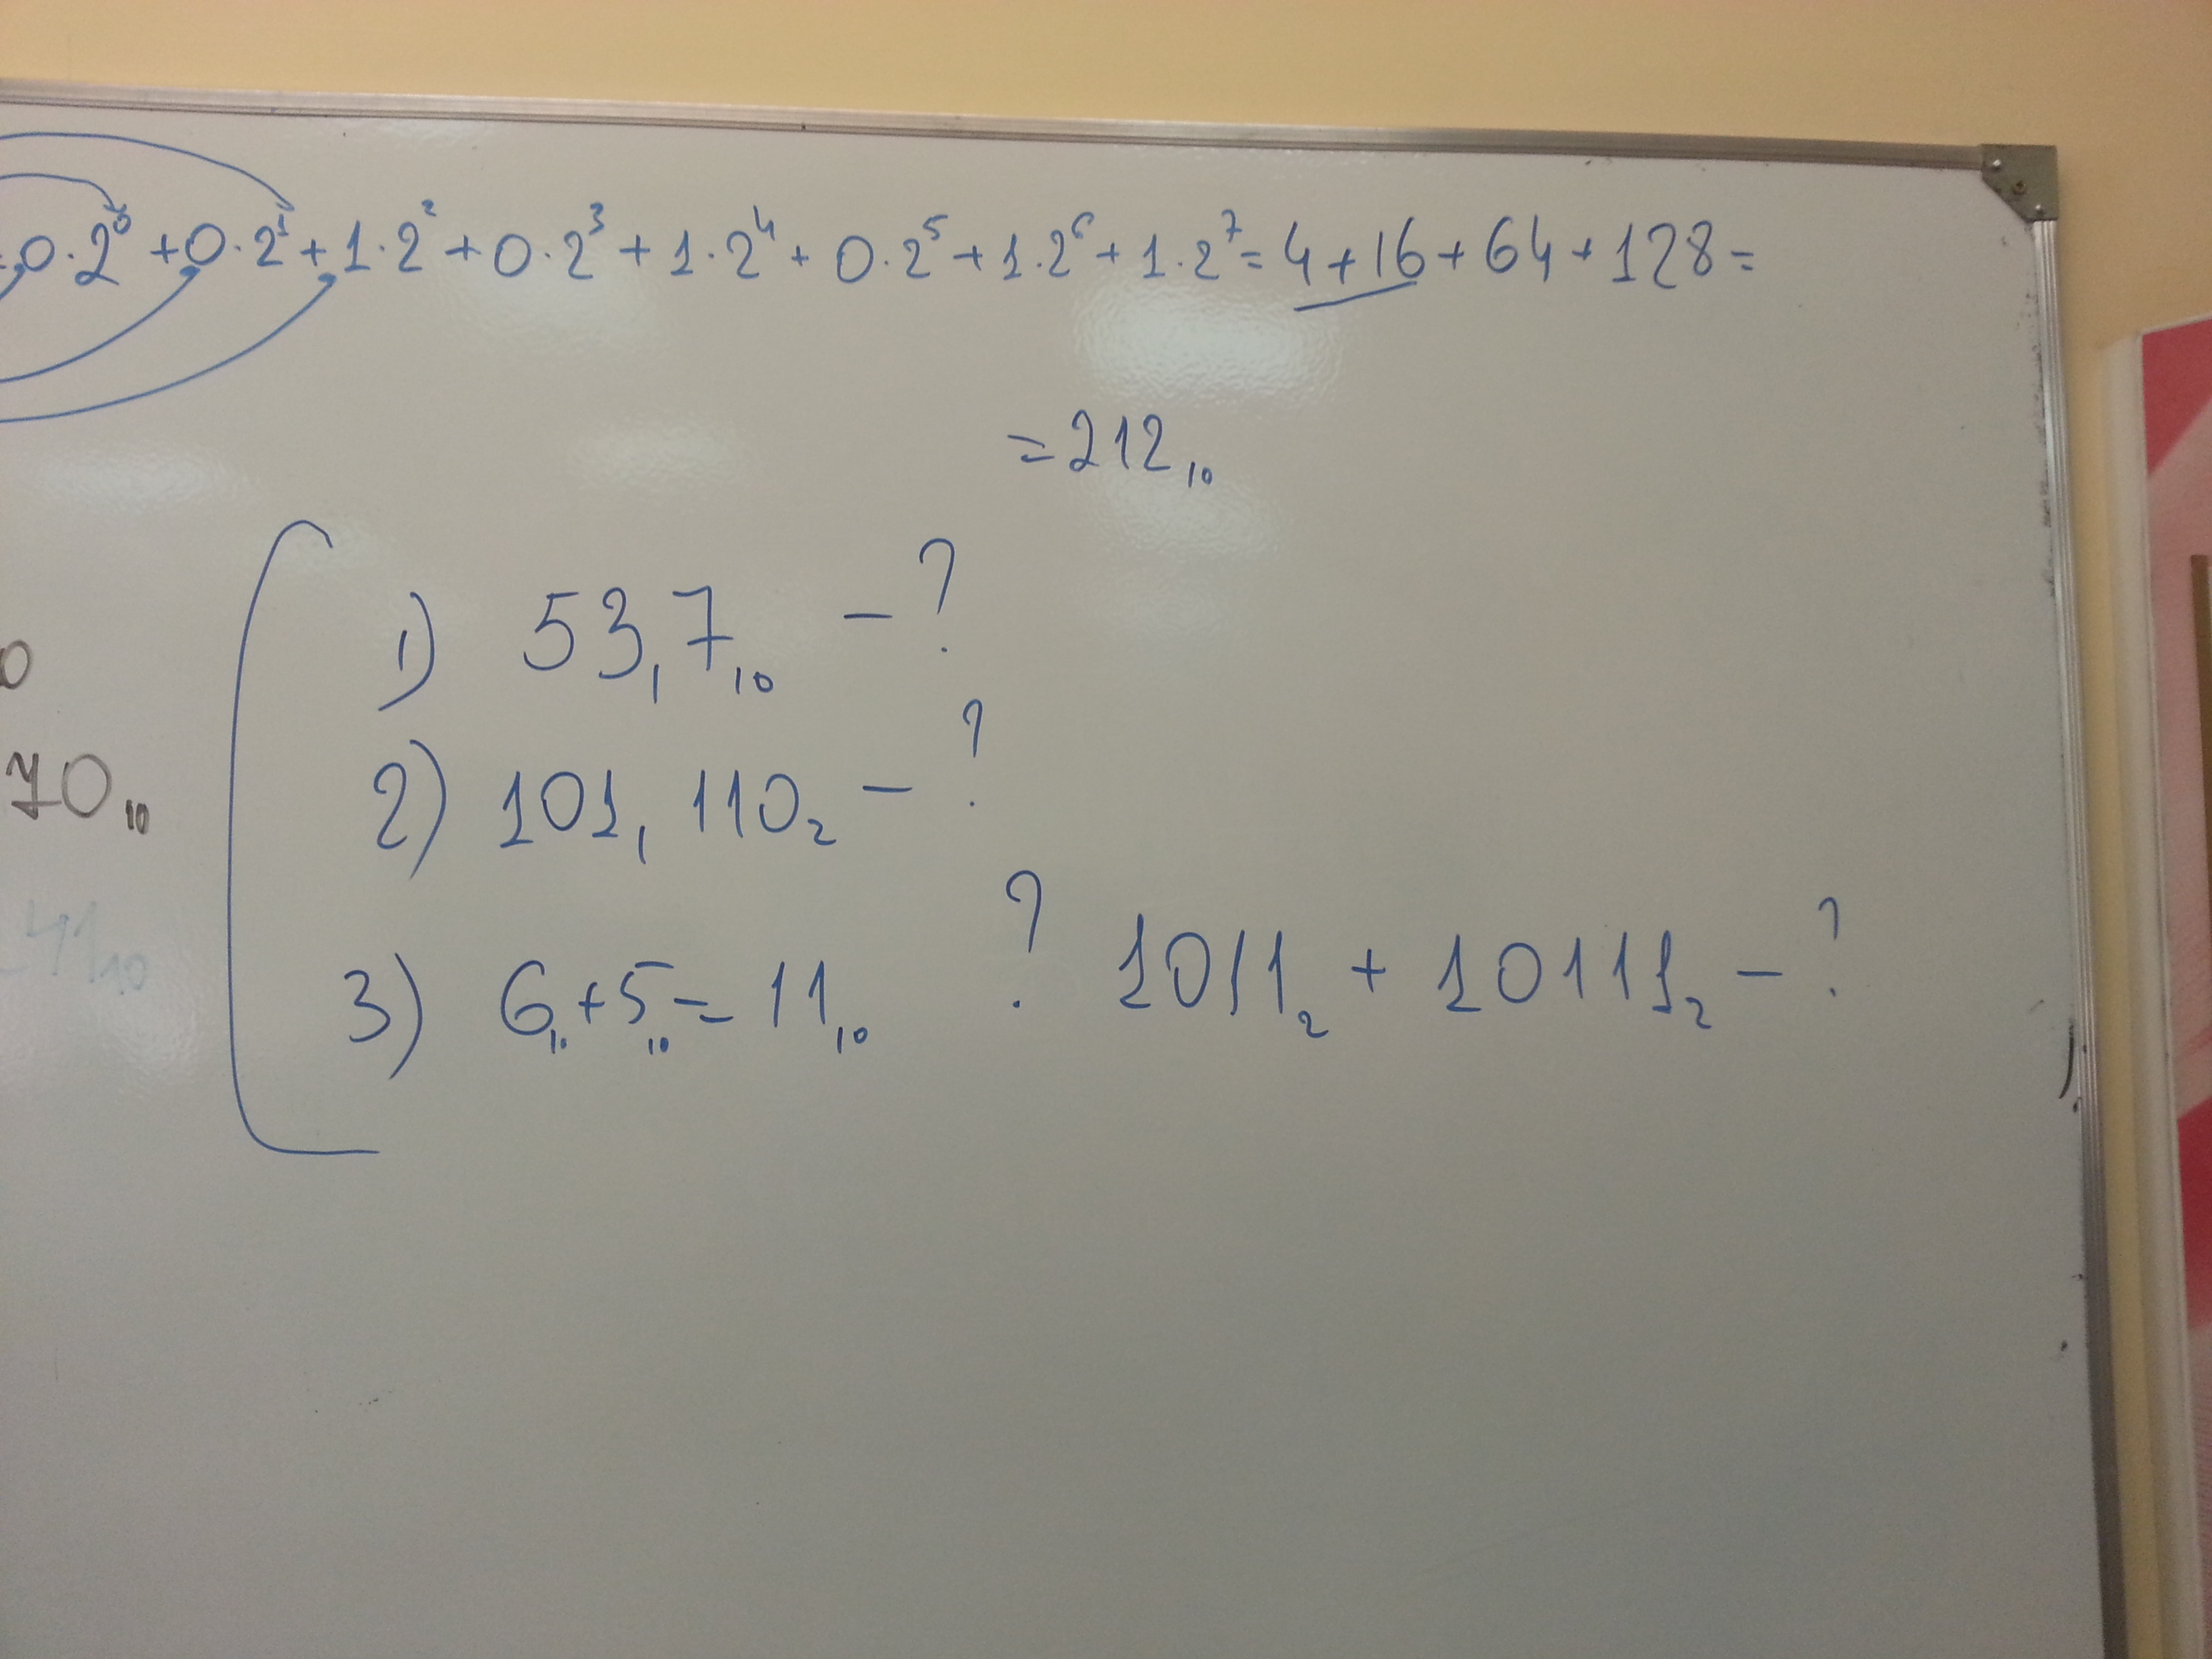 0·2⁰ + 0·2¹ + 1·2² + 0·2³ + 1·2⁴ + 0·2⁵ + 1·2⁶ + 1·2⁷ = 4 + 16 + 64 + 128 =
= 212₁₀
1) 53,7₁₀ – ?
2) 101, 110₂ – ?
70₁₀
3) 6₁₀ + 5₁₀ = 11₁₀ ? 1011₂ + 10111₂ – ?